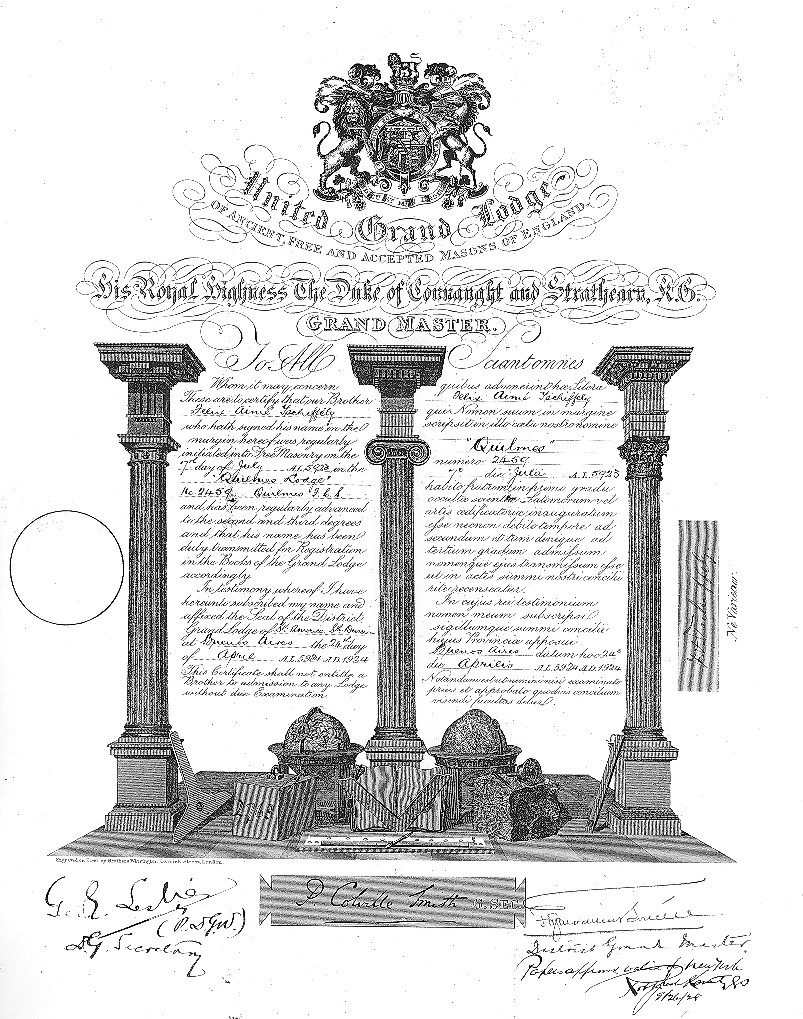 United Grand Lodge
OF ANCIENT, FREE AND ACCEPTED MASONS OF ENGLAND.
His Royal Highness The Duke of Connaught and Strathearn, K.G.
GRAND MASTER.
To All
Whom it may concern
These are to certify that our Brother
Felix Aimé Tschiffely
who hath signed his name in the
margin hereof was regularly
initiated into Free Masonry on the
7th day of July A.L. 5923 in the
"Quilmes Lodge"
No. 2459 Quilmes F.C.S.
and has been regularly advanced
to the second and third degrees
and that his name has been
duly transmitted for Registration
in the Books of the Grand Lodge
accordingly
In testimony whereof I have
hereunto subscribed my name and
affixed the Seal of the District
Grand Lodge of
at Buenos Aires the 24th day
of April A.L. 5924 A.D. 1924
This Certificate shall not entitle a
Brother to admission to any Lodge
without due Examination
Sciant omnes
quibus advenerint hæ Literæ
Felix Aimé Tschiffely
qui Nomen suum in margine
scripsit in illo cœtu nostro nomine
"Quilmes"
numero 2459
7o die Julii A.L. 5923
habito fratrem in primo gradu
occultæ scientiæ Latomorum vel
artis ædificatoriæ inauguratum
esse necnon debito tempore ad
secundum et tum denique ad
tertium gradum admissum
nomenque ejus transmissum esse
ut in actis summi nostri concilii
rite recenseatur.
In cujus rei testimonium
nomen meum subscripsi
sigillumque summi concilii
hujus Provinciæ apposui
Buenos Aires datum hoc 24o
die Aprilis A.L. 5924 A.D. 1924
Notandum est ut nemini nisi examinato
prius et approbato quodvis concilium
visendi facultas detur.
Ne Varietur.
Engraved on Steel by Brother Warrington, Garrick Street, London.
G. R. Leslie
(P.D.G.W.)
D.G. Secretary
P. Colville Smith G. SEC.
District Grand Master
Papers approved New York
9/26/28